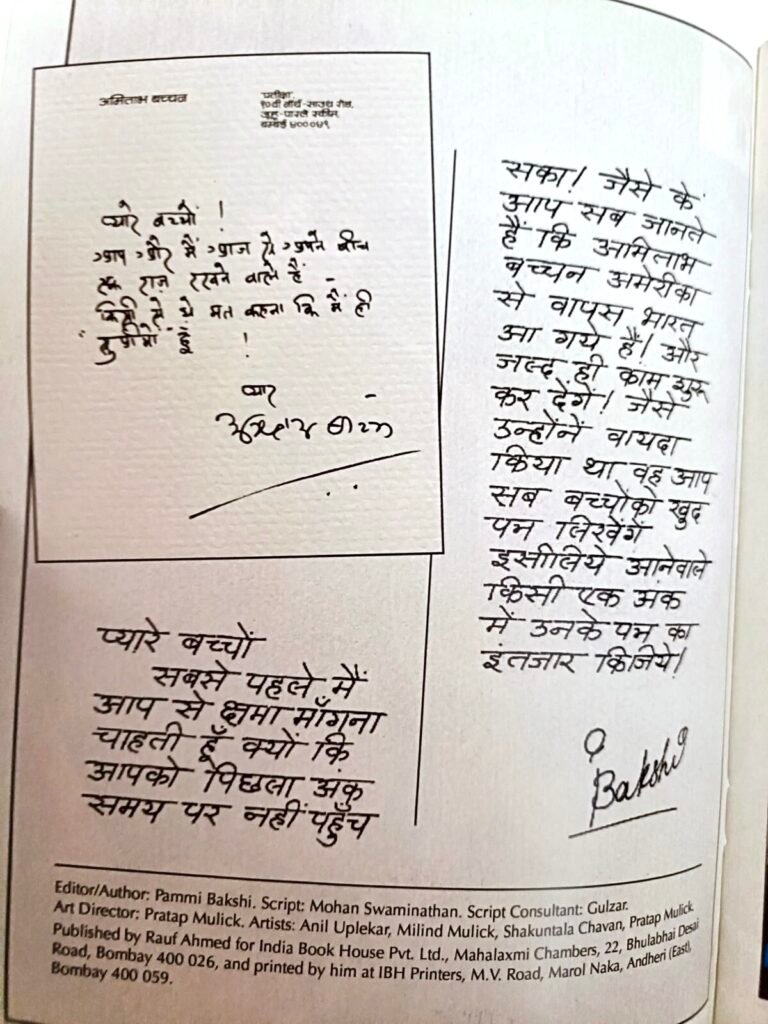 अमिताभ बच्चन
प्रतीक्षा,
१०वाँ नॉर्थ-साउथ रोड,
जुहू-पारले स्कीम,
बम्बई ४०००४९
प्यारे बच्चों !
आप और मैं आज से अपने बीच
एक राज़ रखने वाले हैं -
किसी से ये मत कहना कि मैं ही
'सुप्रीमो' हूँ !
प्यार -
अमिताभ बच्चन
प्यारे बच्चों
सबसे पहले मैं
आप से क्षमा माँगना
चाहती हूँ क्यों कि
आपको पिछला अंक
समय पर नहीं पहुँच
सका! जैसे के
आप सब जानते
हैं कि अमिताभ
बच्चन अमेरीका
से वापस भारत
आ गये हैं! और
जल्द ही काम शुरू
कर देंगें! जैसे
उन्होंनें वायदा
किया था वह आप
सब बच्चोंको खुद
पत्र लिखेंगें
इसीलिये आनेवाले
किसी एक अंक
में उनके पत्र का
इंतजार किजिये!
P Bakshi
Editor/Author: Pammi Bakshi. Script: Mohan Swaminathan. Script Consultant: Gulzar.
Art Director: Pratap Mulick. Artists: Anil Uplekar, Milind Mulick, Shakuntala Chavan, Pratap Mulick.
Published by Rauf Ahmed for India Book House Pvt. Ltd., Mahalaxmi Chambers, 22, Bhulabhai Desai
Road, Bombay 400 026, and printed by him at IBH Printers, M.V. Road, Marol Naka, Andheri (East),
Bombay 400 059.